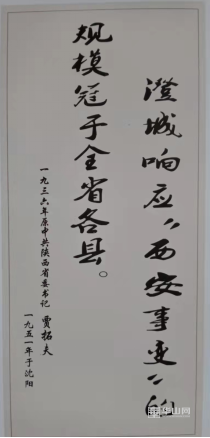 澄城响应“西安事变”的
规模冠于全省各县。
一九三六年原中共陕西省委书记 贾拓夫
一九五一年于沈阳
华山网